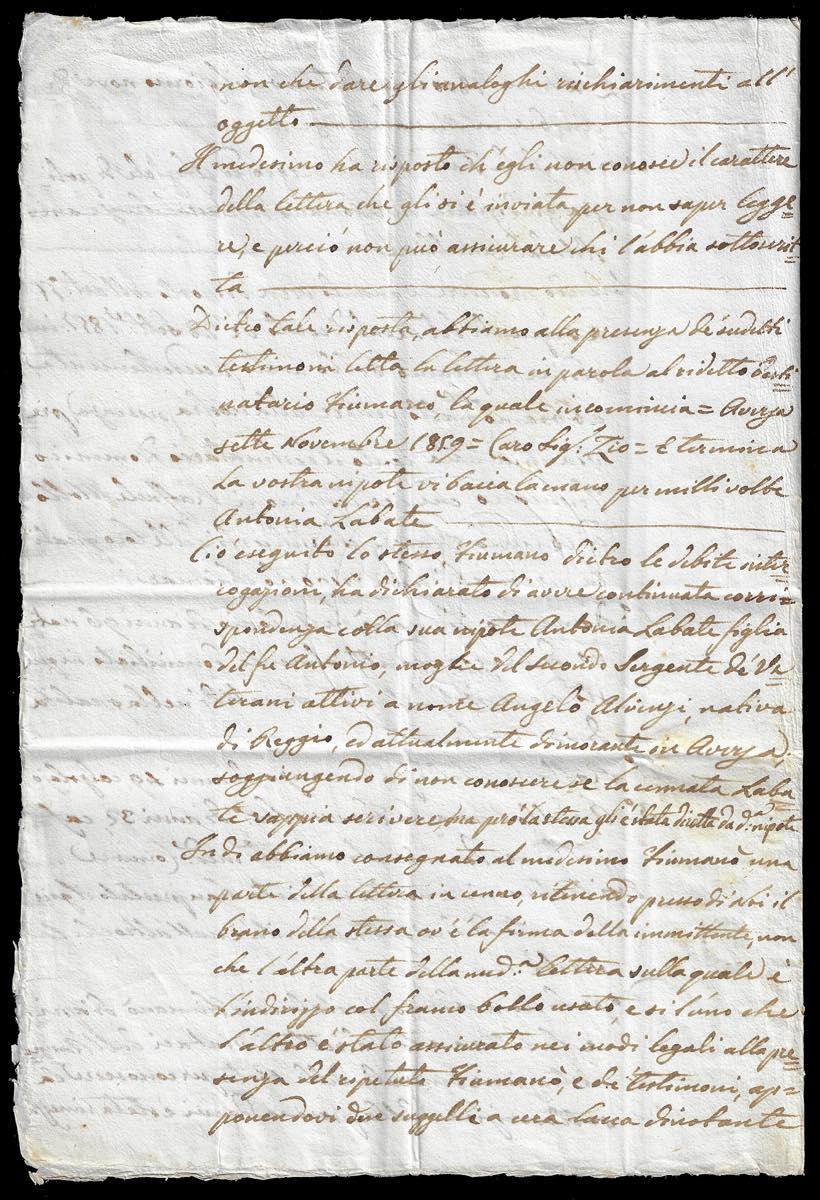 non che dare gli analoghi rischiarimenti all'
oggetto
Il medesimo ha risposto ch'egli non conosce il carattere
della lettera che gli si é inviata, per non saper legge=
re, e perció non può assicurare chi l'abbia sottoscrit=
ta
Dietro tale risposta, abbiamo alla presenza de' sudetti
testimoni letta la lettera in parola al ridetto desti
natario Fiumanò, la quale incomincia= Aversa
sette Novembre 1859= Caro Sig.r Zio= E termina
La vostra nipote vi bacia la mano per milli volte
Antonia Labate
Ció eseguito lo stesso Fiumanò dietro le debite inter=
rogazioni, ha dichiarato di avere continuata corri=
spondenza colla sua nipote Antonia Labate figlia
del fu Antonio, moglie del secondo Sergente de' Ve=
terani attivi a nome Angelo Alvinzi, nativa
di Reggio, ed attualmente dimorante in Aversa,
soggiungendo di non conoscere se la cennata Laba=
te sappia scrivere, ma però la stessa gli é stata diretta da d.a nipote
Indi abbiamo consegnato al medesimo Fiumanò una
parte della lettera in cenno, ritenendo presso di noi il
brano della stessa ov'é la firma della immittente, non
che l'altra parte della med.a lettera sulla quale é
l'indirizzo col franco bollo usato, e sì l'uno che
l'altro é stato assicurato nei modi legali alla pre=
senza del ripetuto Fiumanò, e de' testimoni, ap=
ponendovi due suggelli a cera lacca dinotante